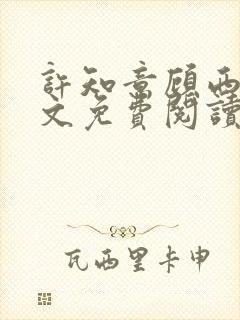 許知意顧西
文免費閱讀
瓦西里卡申